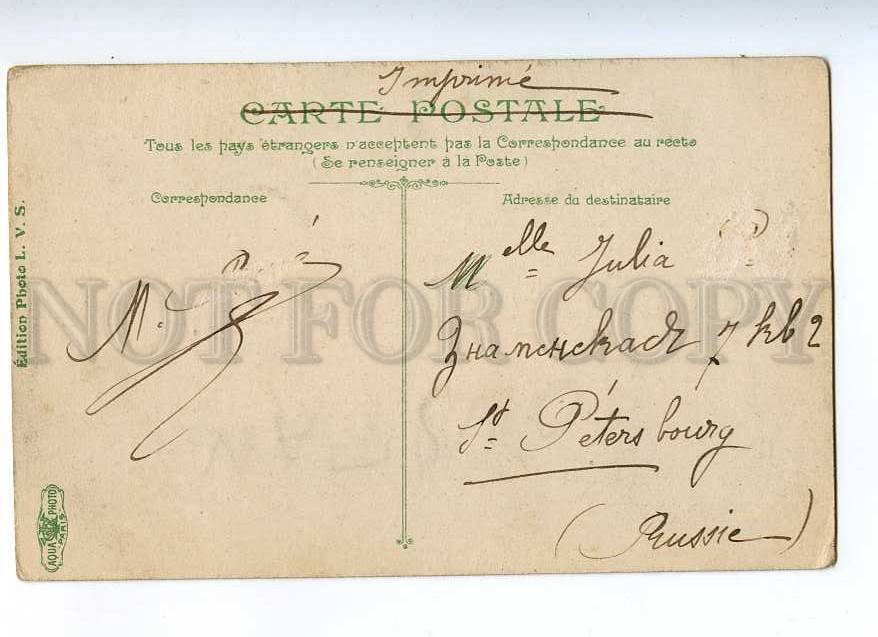 Imprimé
CARTE POSTALE
Tous les pays étrangers n'acceptent pas la Correspondance au recto
(Se renseigner à la Poste)
Correspondance
Adresse du destinataire
Édition Photo L. V. S.
Melle Julia
Знаменская 7 кв 2
St Pétersbourg
(Russie)
AQUA PHOTO
PARIS
NOT FOR COPY